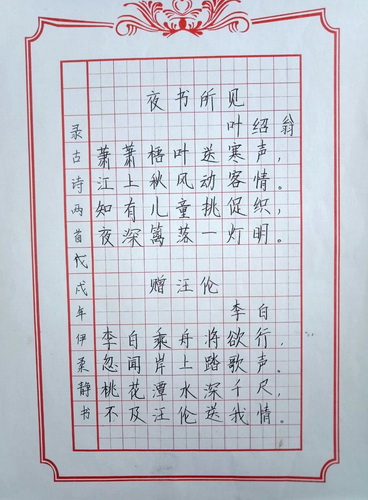 夜书所见
叶绍翁
萧萧梧叶送寒声，
江上秋风动客情。
知有儿童挑促织，
夜深篱落一灯明。
赠汪伦
李白
李白乘舟将欲行，
忽闻岸上踏歌声。
桃花潭水深千尺，
不及汪伦送我情。
录古诗两首戊戌年伊柔静书